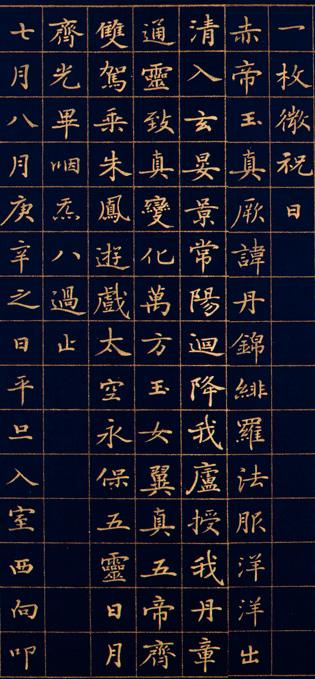 一枚微祝曰
赤帝玉真厥諱丹錦緋羅法服洋洋出
清入玄晏景常陽迴降我廬授我丹章
通靈致真變化萬方玉女翼真五帝齊
雙駕乘朱鳳遊戲太空永保五靈日月
齊光畢咽炁八過止
七月八月庚辛之日平旦入室西向叩